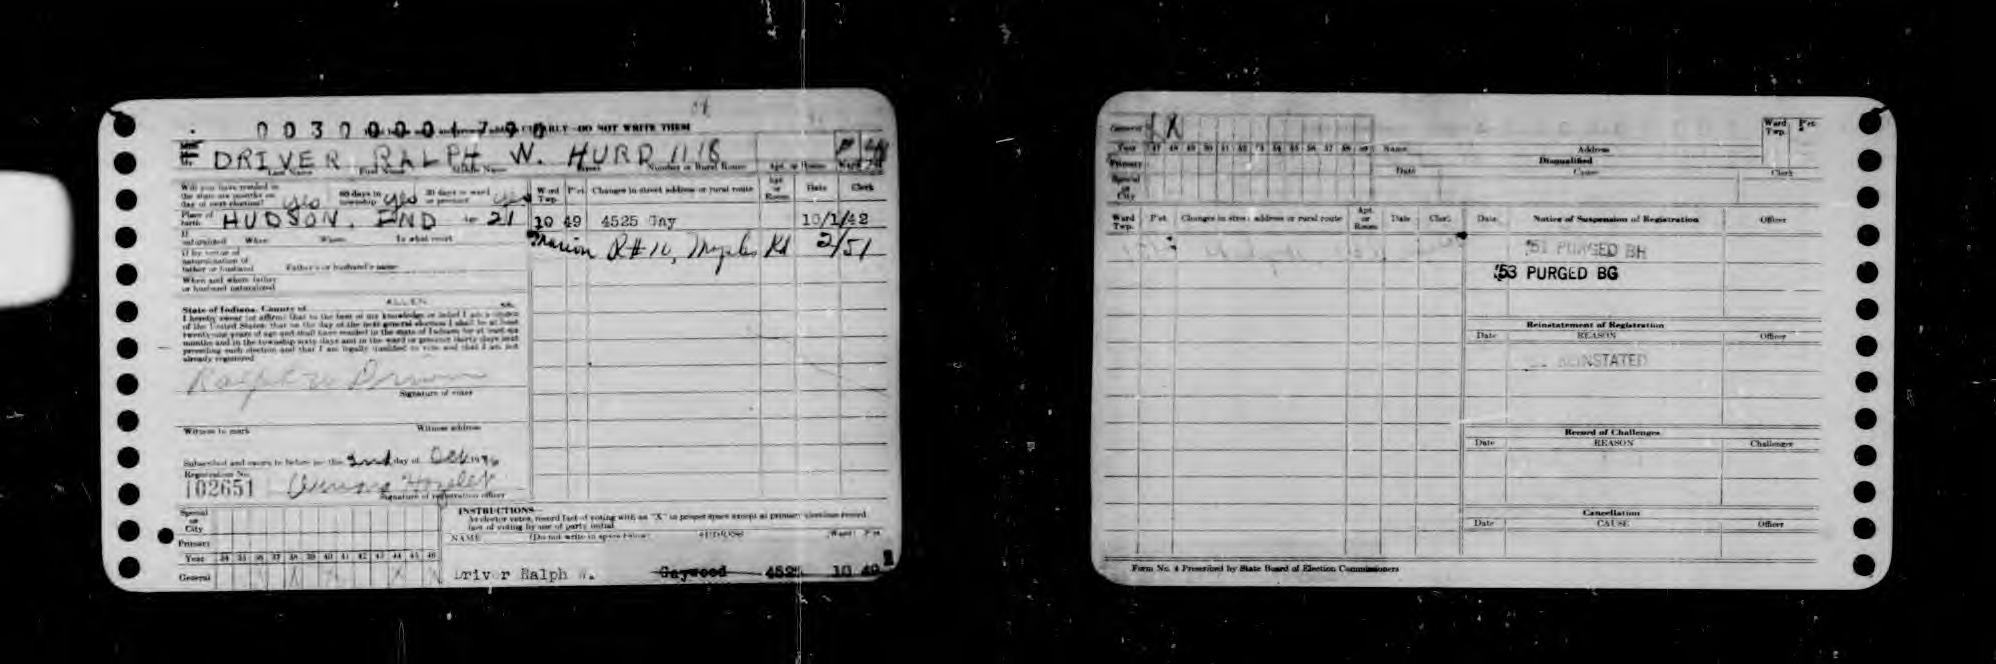 0 0 3 0 0 0 0 1 7 9 0
CLEARLY—DO NOT WRITE THEM
DRIVER RALPH W. HURD 1118
Last Name First Name Middle Name Street Number or Rural Route Apt. or Room Ward
Will you have resided in the state six months on day of next election? yes 60 days in township yes 30 days in ward or precinct yes
Place of birth HUDSON, IND 21
If naturalized When Where In what court
If by virtue of naturalization of father or husband Father's or husband's name
When and where father or husband naturalized
Ward Twp. P'ct. Changes in street address or rural route Apt. or Room Date Clerk
10 49 4525 Gay 10/1/42
Marion R#10, Kd 2/51
State of Indiana, County of ALLEN ss.
I hereby swear (or affirm) that to the best of my knowledge or belief I am a citizen
of the United States; that on the day of the next general election I shall be at least
twenty-one years of age and shall have resided in the state of Indiana for at least six
months and in the township sixty days and in the ward or precinct thirty days next
preceding such election and that I am legally qualified to vote and that I am not
already registered
Ralph W Driver
Signature of voter
Witness to mark Witness address
Subscribed and sworn to before me this 2nd day of Oct 19
Registration No.
102651
Signature of registration officer
Special or City
Primary
Year 34 35 36 37 38 39 40 41 42 43 44 45 46
General X X
INSTRUCTIONS—
As elector votes, record fact of voting with an "X" in proper space except at primary elections record
fact of voting by use of party initial
NAME (Do not write in space below) ADDRESS Ward P'ct.
Driver Ralph W. Gaywood 4525 10 49
General X X
Year 47 48 49 50 51 52 53 54 55 56 57 58 59
Primary
Special or City
Name Address Ward Twp. P'ct.
Disqualified
Date Cause Clerk
Ward Twp. P'ct. Changes in street address or rural route Apt. or Room Date Clerk
Date Notice of Suspension of Registration Officer
'51 PURGED BH
'53 PURGED BG
Reinstatement of Registration
Date REASON Officer
REINSTATED
Record of Challenges
Date REASON Challenger
Cancellation
Date CAUSE Officer
Form No. 4 Prescribed by State Board of Election Commissioners